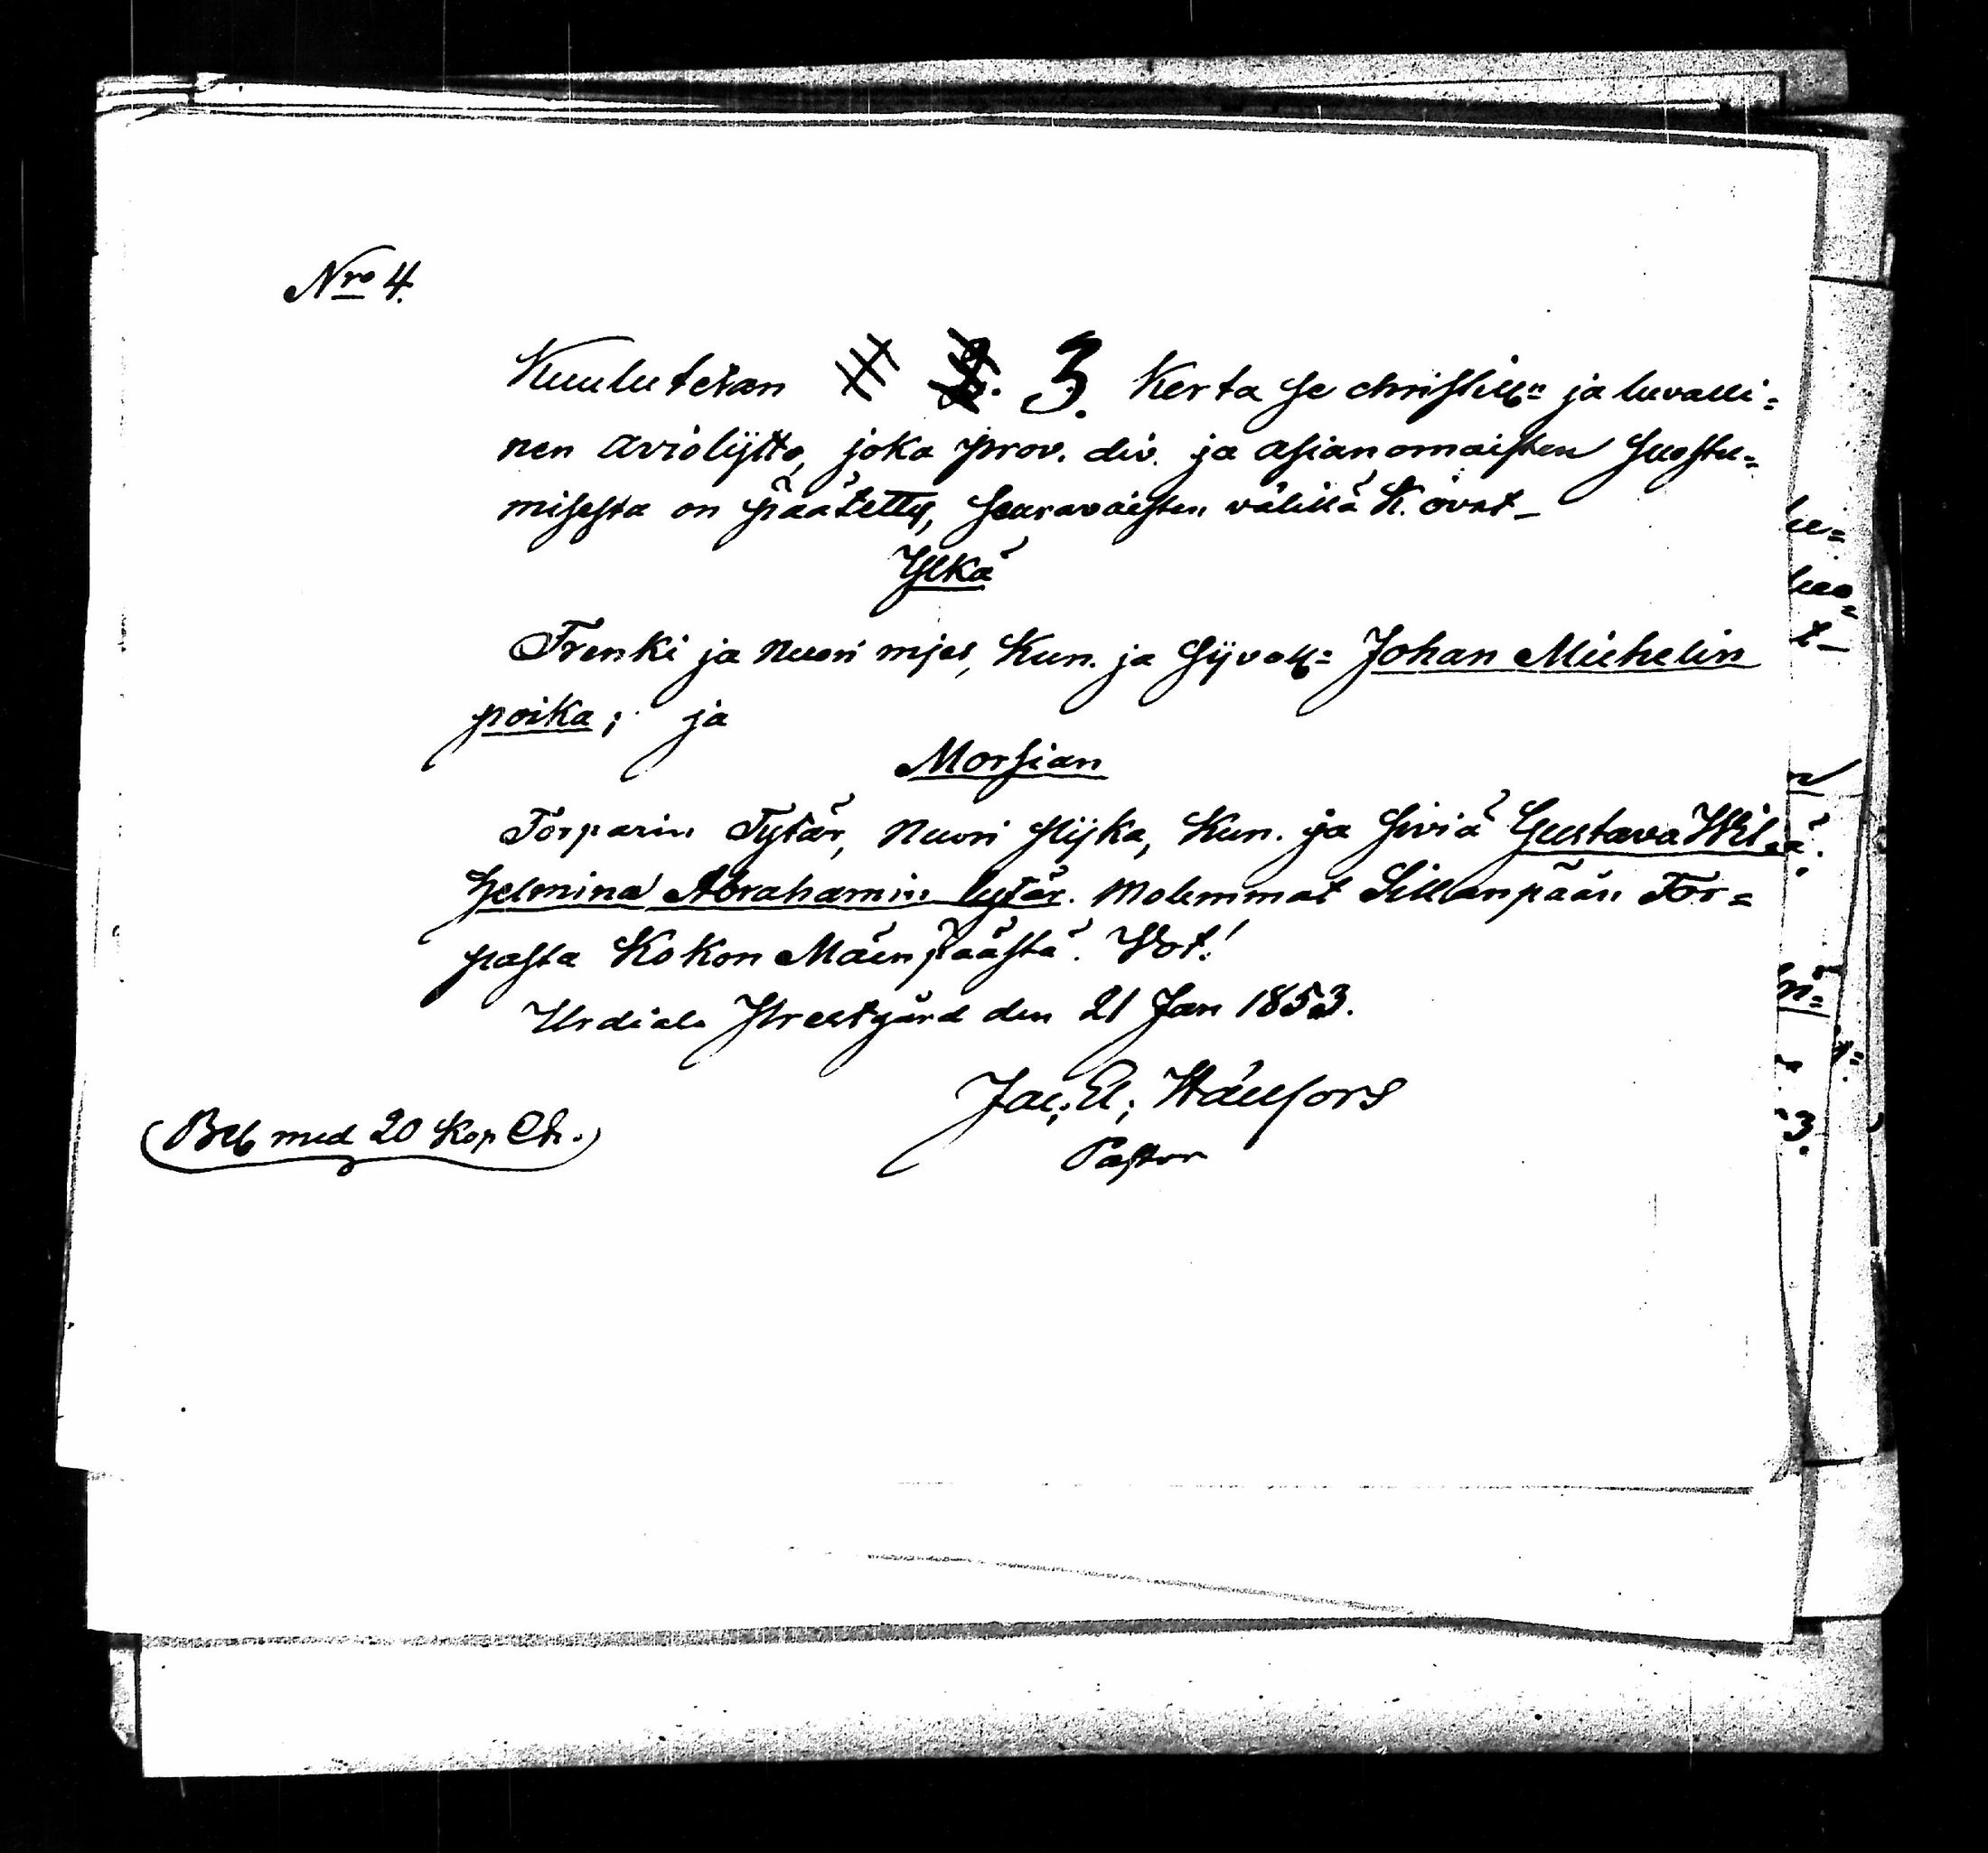 Nro 4.
Kuulutetan 3. Kerta se christill: ja luvalli=
nen aviolijtto, joka prov. div. ja asianomaisten suostu=
misesta on päätetty, seuravaisten välillä K. ovat_
Ylkä
Trenki ja Nuori mjes, Kun. ja Sijvoll: Johan Michelin
poika; ja
Morsian
Torparin Tytär, Nuori Pijka, Kun. ja Siviä Gustava Wil=
helmina Abrahamin tytär. Molemmat Sillanpään Tor=
pasta Kokon Mäenpäästä. Wot!
Urdiala Prestgård den 21 Jan 1853.
Jac. El. Hällfors
Pastor
(Bet med 20 Kop